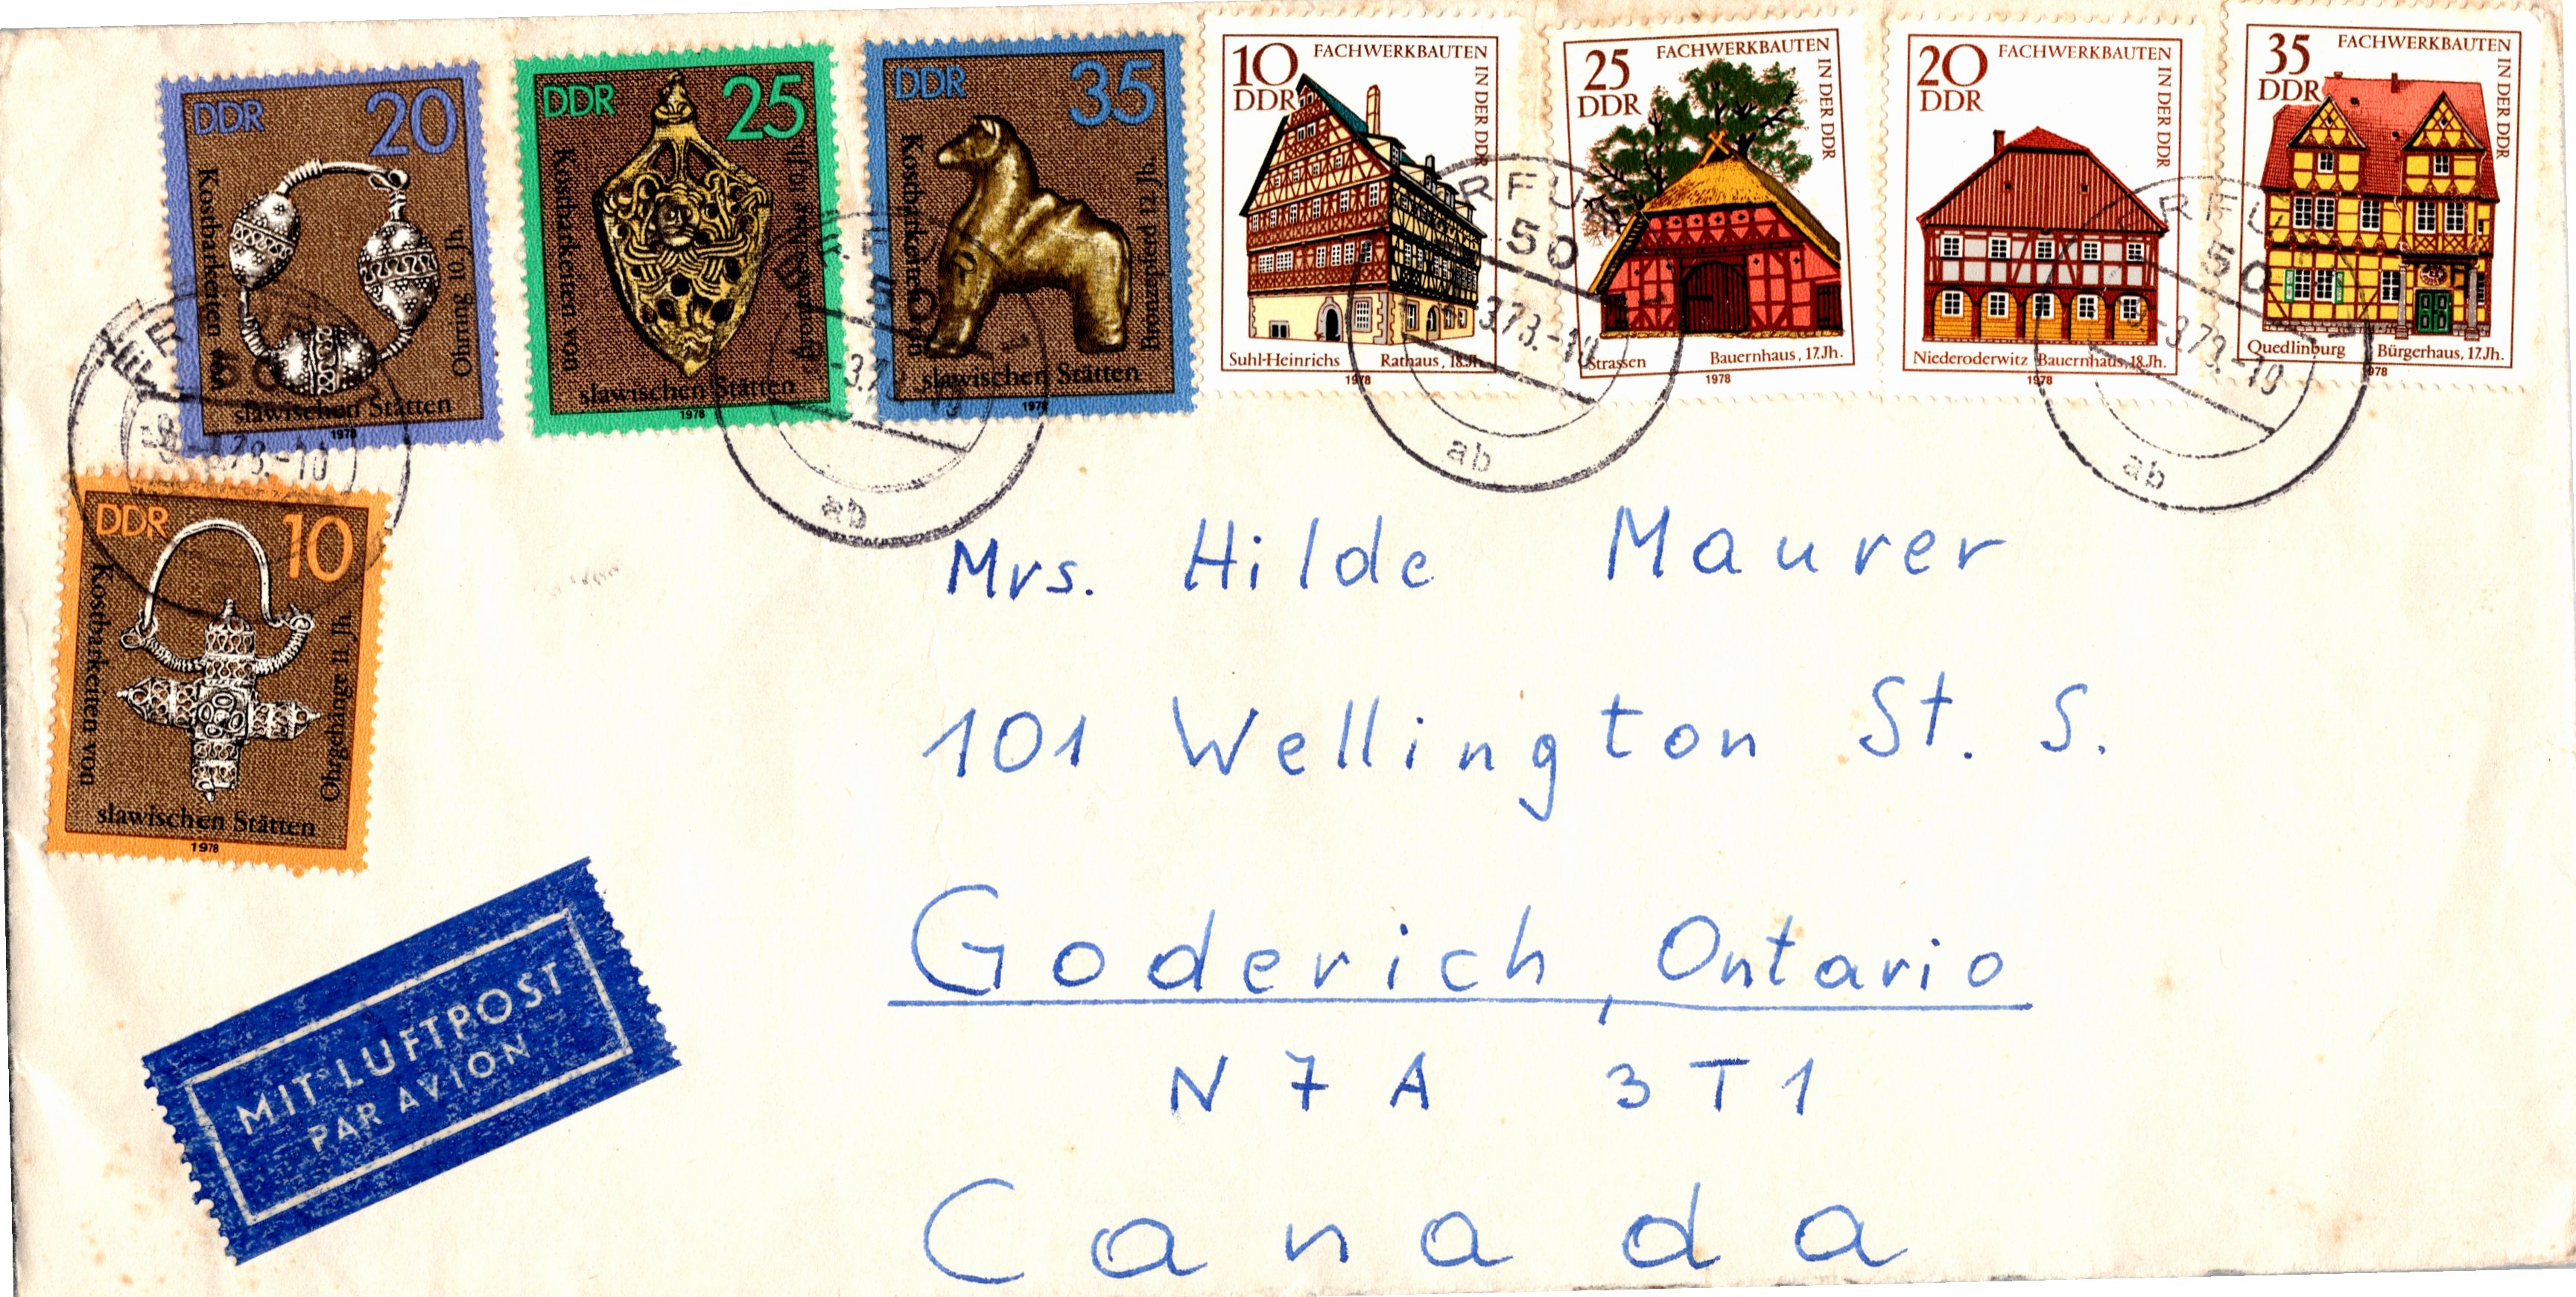 DDR 20
Kostbarkeiten von
slawischen Stätten
Ohrring 10. Jh.
1978
DDR 25
Kostbarkeiten von
slawischen Stätten
1978
DDR 35
Kostbarkeiten von
slawischen Stätten
Bronzepferd 12. Jh.
1978
10
DDR
FACHWERKBAUTEN
IN DER DDR
Suhl-Heinrichs Rathaus, 18.Jh.
1978
25
DDR
FACHWERKBAUTEN
IN DER DDR
Strassen Bauernhaus, 17.Jh.
1978
20
DDR
FACHWERKBAUTEN
IN DER DDR
Niederoderwitz Bauernhaus, 18.Jh.
1978
35
DDR
FACHWERKBAUTEN
IN DER DDR
Quedlinburg Bürgerhaus, 17.Jh.
1978
50
ab
50
ab
50
ab
DDR 10
Kostbarkeiten von
slawischen Stätten
Ohrgehänge 11. Jh.
1978
MIT LUFTPOST
PAR AVION
Mrs. Hilde Maurer
101 Wellington St. S.
Goderich, Ontario
N7A 3T1
Canada